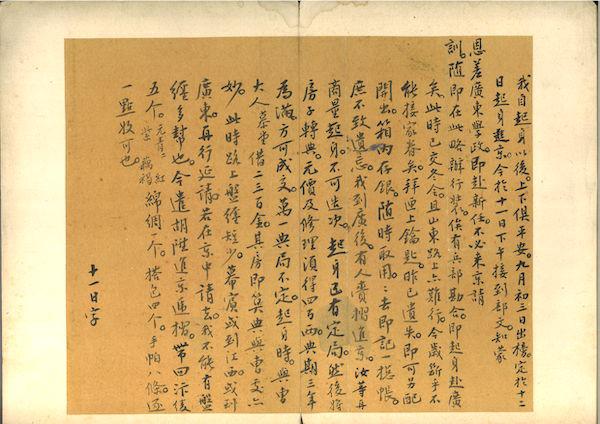 我自起身以後。上下俱平安。九月初三日出棚。定於十二
日起身赴京。今於十一日下午接到部文。知蒙
恩差廣東學政。即赴新任。不必來京請
訓。隨即在此略辦行裝。俟有兵部勘合。即起身赴廣
矣。此時已交冬令。且山東路上亦難行。今歲斷乎不
能接家眷矣。拜匣上鑰匙。昨已遺失。即可另配
開出。箱內存銀。隨時取用。用去即記一摠帳。
庶不致遺忘。我到廣後。有人賫摺進京。汝等再
商量起身。不可造次。起身已有定局。然後將
房子轉典。元價及修理須得四百兩。典期三年
為滿。方可成交。萬一典局不定。起身時。與曹
大人慕堂借二三百金。其房即算典與曹處亦
妙。此時路上盤纏短少。幕賓或到江西或到
廣東再行延請。若在京中請去。我不能有盤
纏多幫也。今遣胡陞進京遞摺。帶回汴綾
五个。元青二 紅 紫 藕褐 綿綢一个。搭包四个。手帕八條。逐
一點收可也。
十一日字